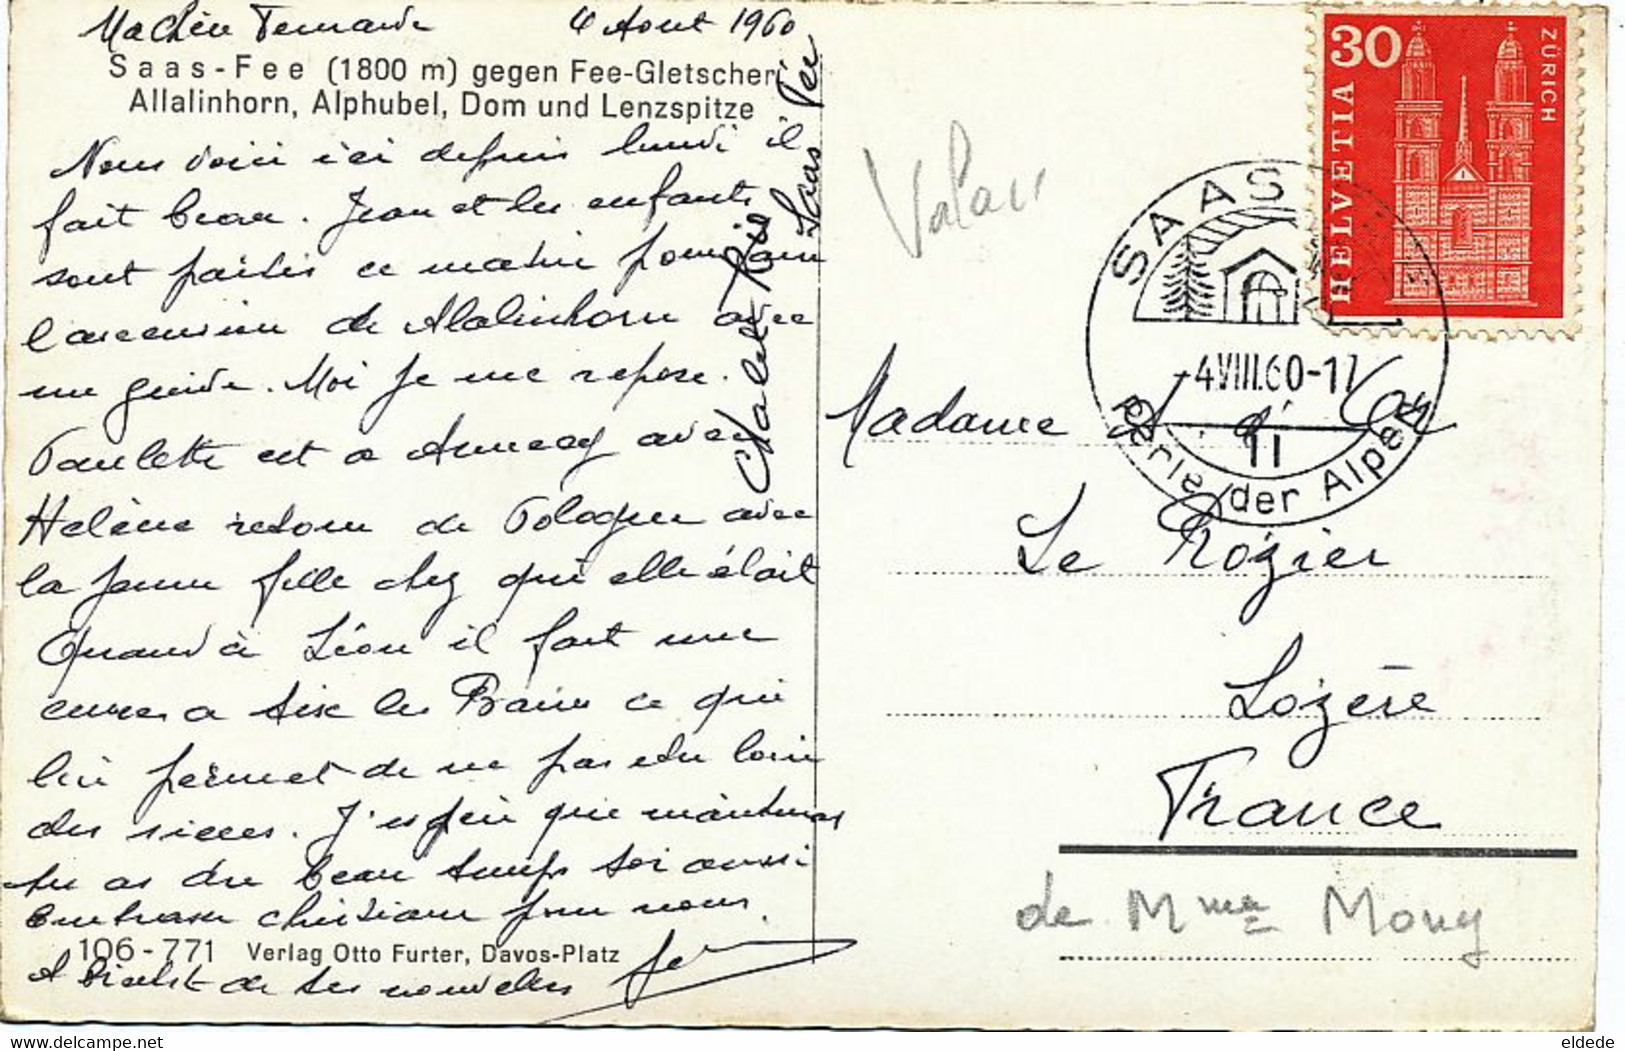 Ma Chère Fernande 4 Aout 1960
Saas-Fee (1800 m) gegen Fee-Gletscher,
Allalinhorn, Alphubel, Dom und Lenzspitze
Nous voici ici depuis lundi il
fait beau. Jean et les enfants
sont partis ce matin pour faire
l'ascension de Alalinhorn avec
un guide. Moi je me repose.
Paulette est a Annecy avec
Hélène retour de Pologne avec
la jeune fille chez qui elle était
Quand à Léon il fait une
cure a Aix les Bains ce qui
lui permet de ne pas etre loin
des sieees. J'espère que maintenant
tu as du beau temps toi aussi
Embrasse christiane pour nous.
106-771 Verlag Otto Furter, Davos-Platz
A bientot de tes nouvelles
Chalet
Saas Fee
Valais
HELVETIA
30
ZÜRICH
SAAS
-4VIII.60-17
11
Perle der Alpen
Madame
Le Rozier
Lozère
France
de Mme Mony
eldede